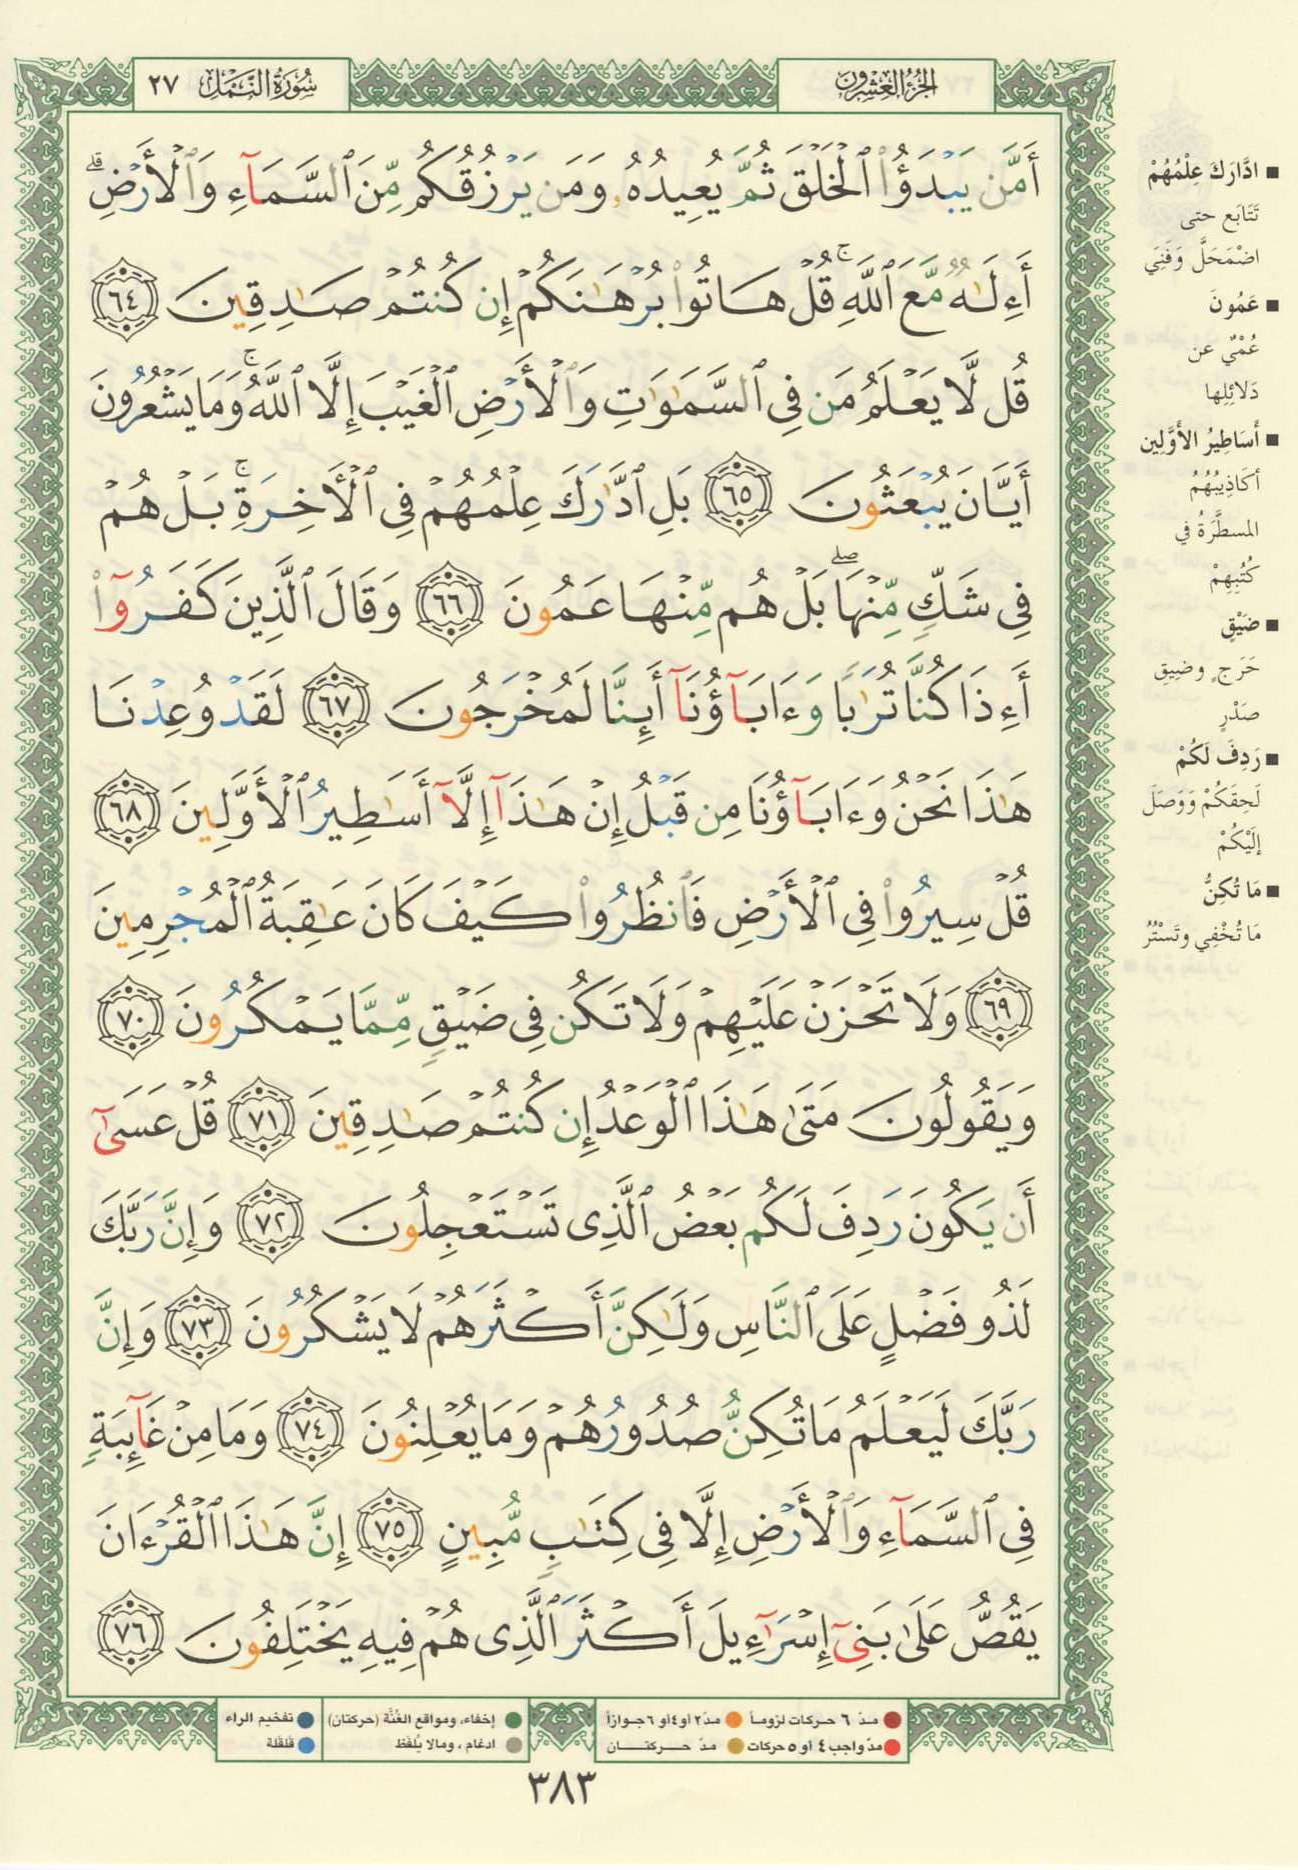 الجزء العشرون
سورة النمل ٢٧
أَمَّن يَبْدَؤُا۟ ٱلْخَلْقَ ثُمَّ يُعِيدُهُۥ وَمَن يَرْزُقُكُم مِّنَ ٱلسَّمَآءِ وَٱلْأَرْضِ ۗ
أَءِلَـٰهٌ مَّعَ ٱللَّهِ ۚ قُلْ هَاتُوا۟ بُرْهَـٰنَكُمْ إِن كُنتُمْ صَـٰدِقِينَ ٦٤
قُل لَّا يَعْلَمُ مَن فِى ٱلسَّمَـٰوَٰتِ وَٱلْأَرْضِ ٱلْغَيْبَ إِلَّا ٱللَّهُ ۚ وَمَا يَشْعُرُونَ
أَيَّانَ يُبْعَثُونَ ٦٥ بَلِ ٱدَّٰرَكَ عِلْمُهُمْ فِى ٱلْأَخِرَةِ ۚ بَلْ هُمْ
فِى شَكٍّ مِّنْهَا ۖ بَلْ هُم مِّنْهَا عَمُونَ ٦٦ وَقَالَ ٱلَّذِينَ كَفَرُوٓا۟
أَءِذَا كُنَّا تُرَٰبًا وَءَابَآؤُنَآ أَئِنَّا لَمُخْرَجُونَ ٦٧ لَقَدْ وُعِدْنَا
هَـٰذَا نَحْنُ وَءَابَآؤُنَا مِن قَبْلُ إِنْ هَـٰذَآ إِلَّآ أَسَـٰطِيرُ ٱلْأَوَّلِينَ ٦٨
قُلْ سِيرُوا۟ فِى ٱلْأَرْضِ فَٱنظُرُوا۟ كَيْفَ كَانَ عَـٰقِبَةُ ٱلْمُجْرِمِينَ
٦٩ وَلَا تَحْزَنْ عَلَيْهِمْ وَلَا تَكُن فِى ضَيْقٍ مِّمَّا يَمْكُرُونَ ٧٠
وَيَقُولُونَ مَتَىٰ هَـٰذَا ٱلْوَعْدُ إِن كُنتُمْ صَـٰدِقِينَ ٧١ قُلْ عَسَىٰٓ
أَن يَكُونَ رَدِفَ لَكُم بَعْضُ ٱلَّذِى تَسْتَعْجِلُونَ ٧٢ وَإِنَّ رَبَّكَ
لَذُو فَضْلٍ عَلَى ٱلنَّاسِ وَلَـٰكِنَّ أَكْثَرَهُمْ لَا يَشْكُرُونَ ٧٣ وَإِنَّ
رَبَّكَ لَيَعْلَمُ مَا تُكِنُّ صُدُورُهُمْ وَمَا يُعْلِنُونَ ٧٤ وَمَا مِنْ غَآئِبَةٍ
فِى ٱلسَّمَآءِ وَٱلْأَرْضِ إِلَّا فِى كِتَـٰبٍ مُّبِينٍ ٧٥ إِنَّ هَـٰذَا ٱلْقُرْءَانَ
يَقُصُّ عَلَىٰ بَنِىٓ إِسْرَٰٓءِيلَ أَكْثَرَ ٱلَّذِى هُمْ فِيهِ يَخْتَلِفُونَ ٧٦
■ ادَّارَكَ عِلْمُهُمْ
تَتَابَع حتى
اضْمَحَلَّ وَفَنِيَ
■ عَمُونَ
عُمْيٌ عن
دَلائِلِها
■ أَسَاطِيرُ الأَوَّلِين
أكَاذِيبُهُمُ
المسطَّرَةُ في
كُتُبِهِمْ
■ ضَيْقٍ
حَرَجٍ وضِيقِ
صَدْرٍ
■ رَدِفَ لَكُمْ
لَحِقَكُمْ وَوَصَلَ
إلَيْكُمْ
■ مَا تُكِنُّ
مَا تُخْفِي وتَسْتُرُ
مدّ ٦ حركات لزوماً مدّ ٢ أو ٤ أو ٦ جوازاً
مدّ واجب ٤ أو ٥ حركات مدّ حركتان
إخفاء، ومواقع الغُنَّة (حركتان) تفخيم الراء
ادغام ، ومالا يُلفَظ قلقلة
٣٨٣